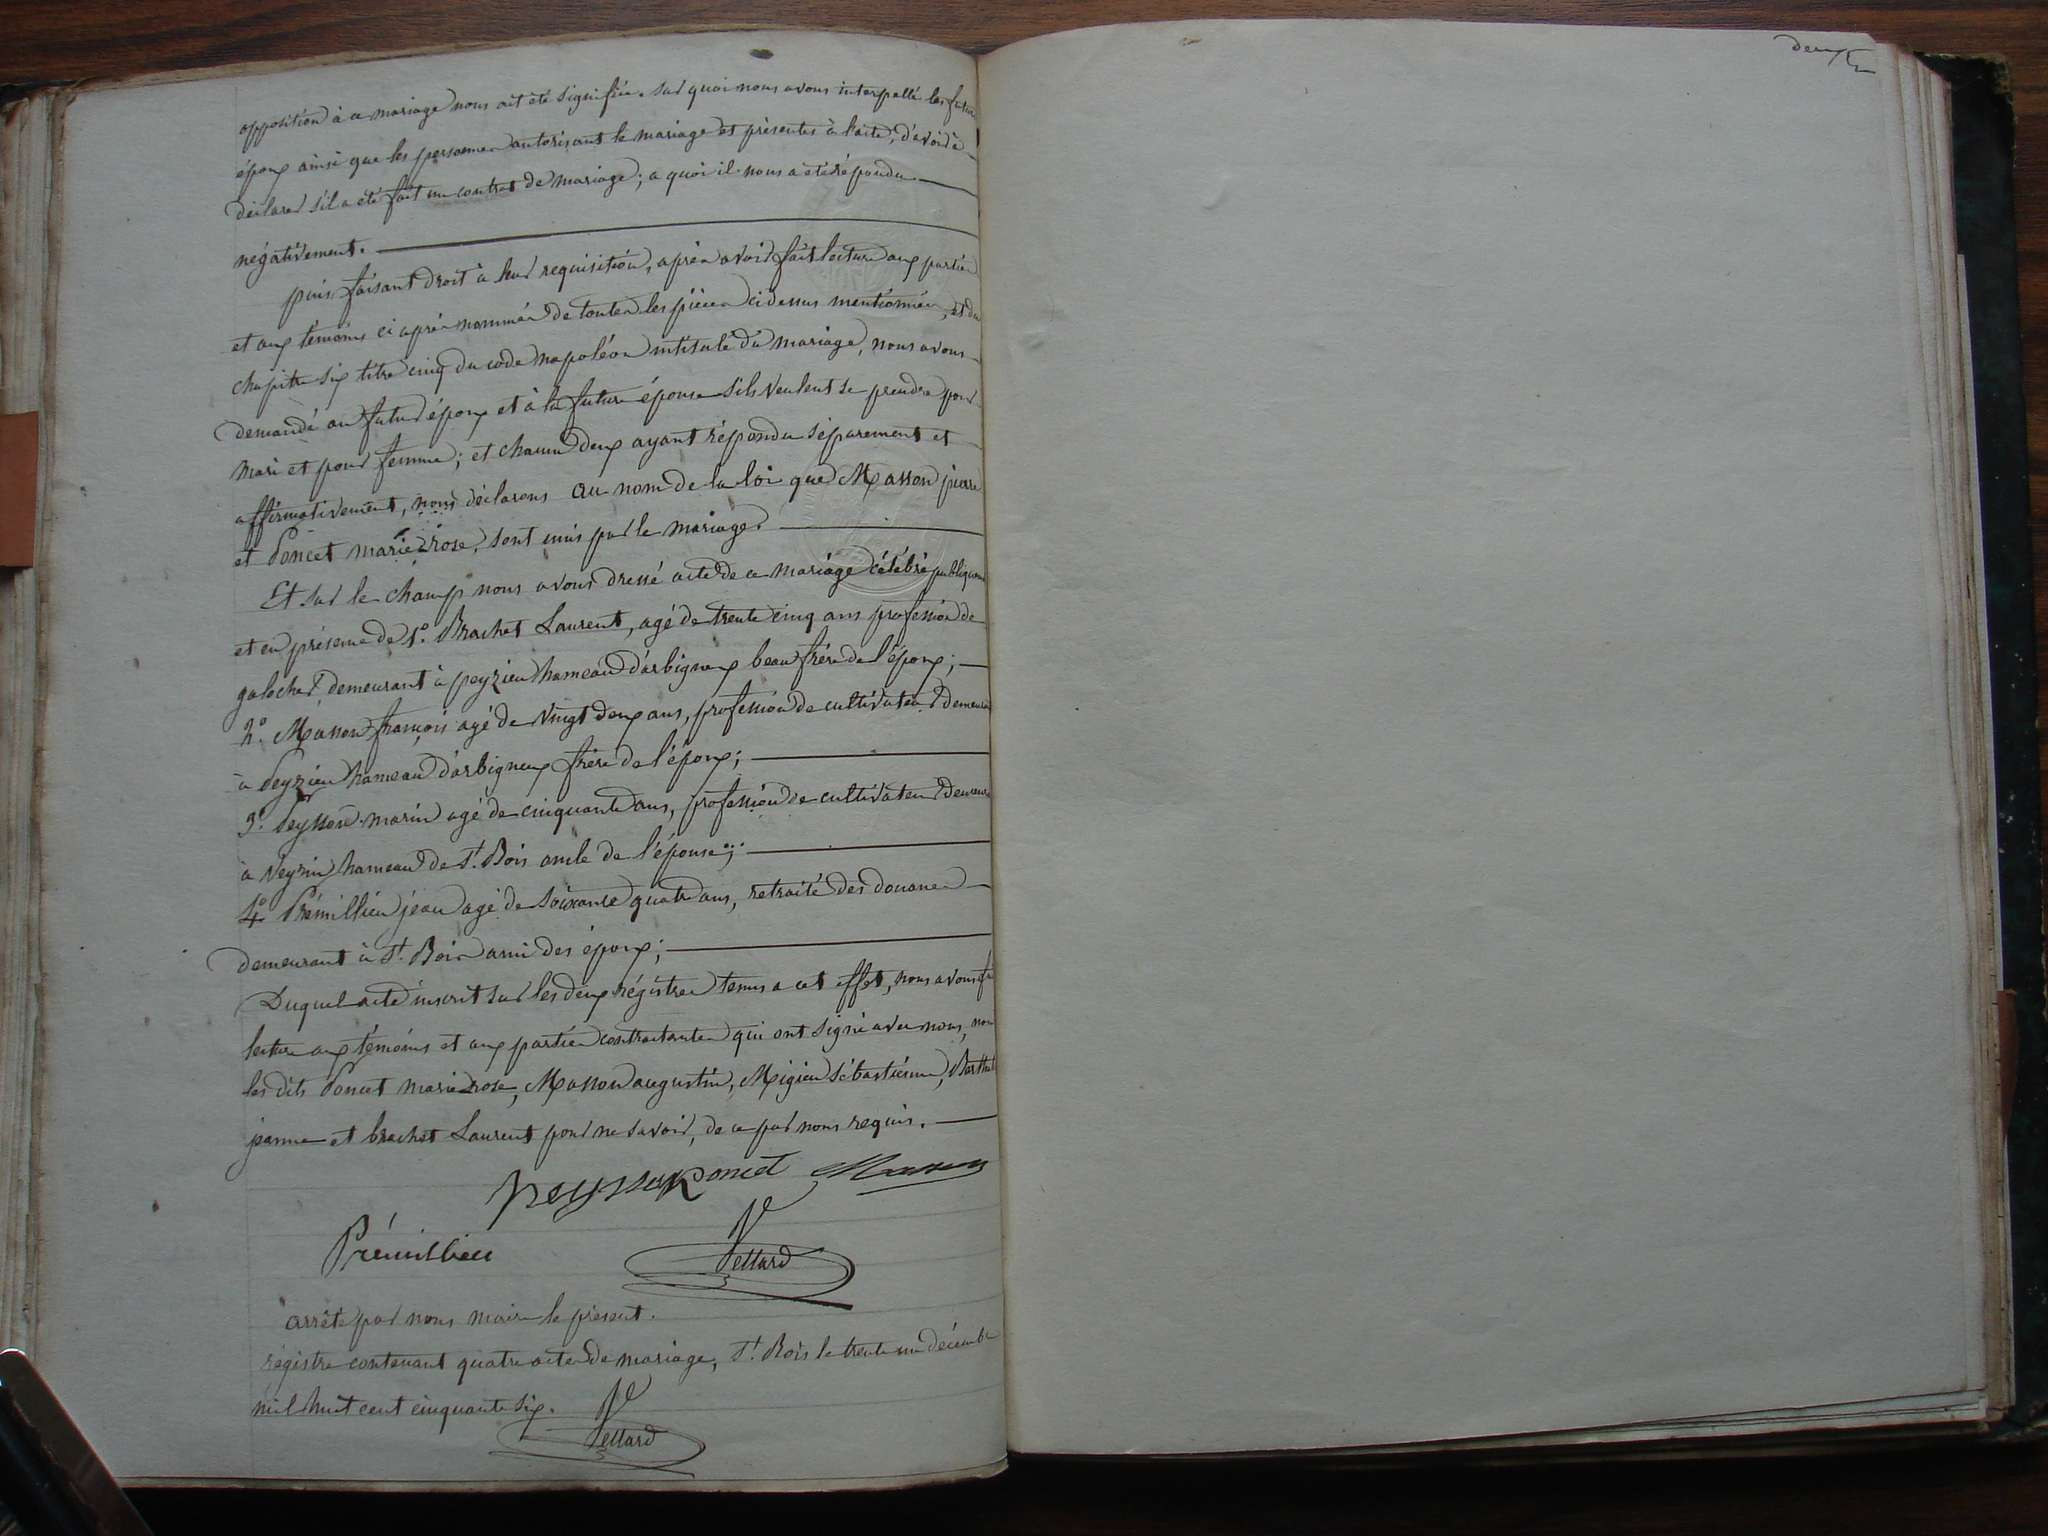 opposition à ce mariage nous ait été signifiée. Sur quoi nous avons interpellé les futurs
époux ainsi que les personnes autorisant le mariage et présentes à l'acte, d'avoir à
déclarer s'il a été fait un contrat de mariage; a quoi il nous a été répondu
négativement.
puis faisant droit à leur requisition, après avoir fait lecture aux parties
et aux témoins ci après nommés de toutes les pièces ci dessus mentionnées, et du
chapitre six titre cinq du code napoléon intitulé du mariage, nous avons
demandé au futur époux et à la future épouse s'ils veulent se prendre pour
mari et pour femme; et chacun deux ayant répondu séparement et
affirmativement, nous déclarons au nom de la loi que Masson pierre
et Poncet marie rose, sont unis par le mariage.
Et sur le champ nous avons dressé acte de ce mariage célébré publiquement
et en présence de 1º. Brachet Laurent, agé de trente cinq ans profession de
galocher demeurant à peyzieu hameau d'arbignieux beau frère de l'époux;
2º. Masson françois agé de vingt deux ans, profession de cultivateur demeurant
à Peyzieu hameau d'arbignieux frère de l'époux;
3º. Peysson marin agé de cinquante ans, profession de cultivateur demeurant
à Veyrin hameau de St. Bois oncle de l'épouse;
4º. Prémillieu jean agé de soixante quatre ans, retraité des douanes
demeurant à St. Bois ami des époux;
Duquel acte inscrit sur les deux régistres tenus a cet effet, nous avons fait
lecture aux témoins et aux parties contractantes qui ont signé avec nous, non
les dits Poncet marie rose, Masson augustin, Migieu sébastienne, Barthel
jeanne et brachet Laurent pour ne savoir, de ce par nous requis.
Peysson Poncet Masson
Prémillieu Vettard
arrêté par nous maire le présent
régistre contenant quatre actes de mariage, St. Bois le trente un décembre
mil huit cent cinquante six.
Vettard
deux